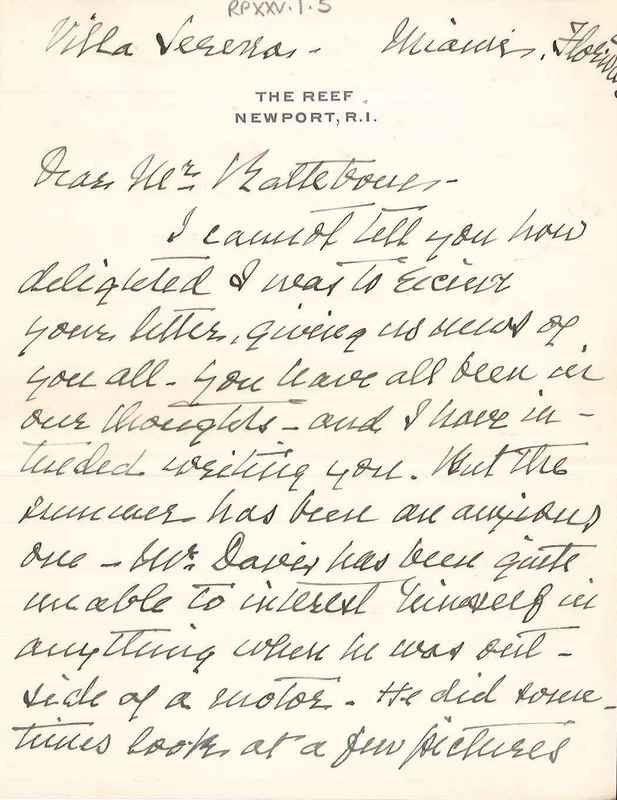 RPXXV.1.5
Villa Serena - Miami, Florida
THE REEF
NEWPORT, R.I.
Dear Mr Rathbone -
I cannot tell you how
delighted I was to receive
your letter, giving us news of
you all - you have all been in
our thoughts - and I have in-
tended writing you. But the
summer has been an anxious
one - Mr. Davis has been quite
unable to interest himself in
anything when he was out-
side of a motor - He did some-
times look at a few pictures